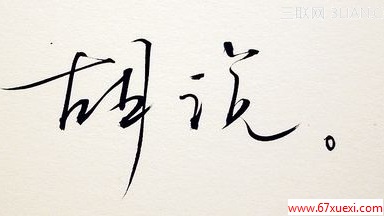 三联网 3LIAN.C
胡说。
www.67xuexi.com